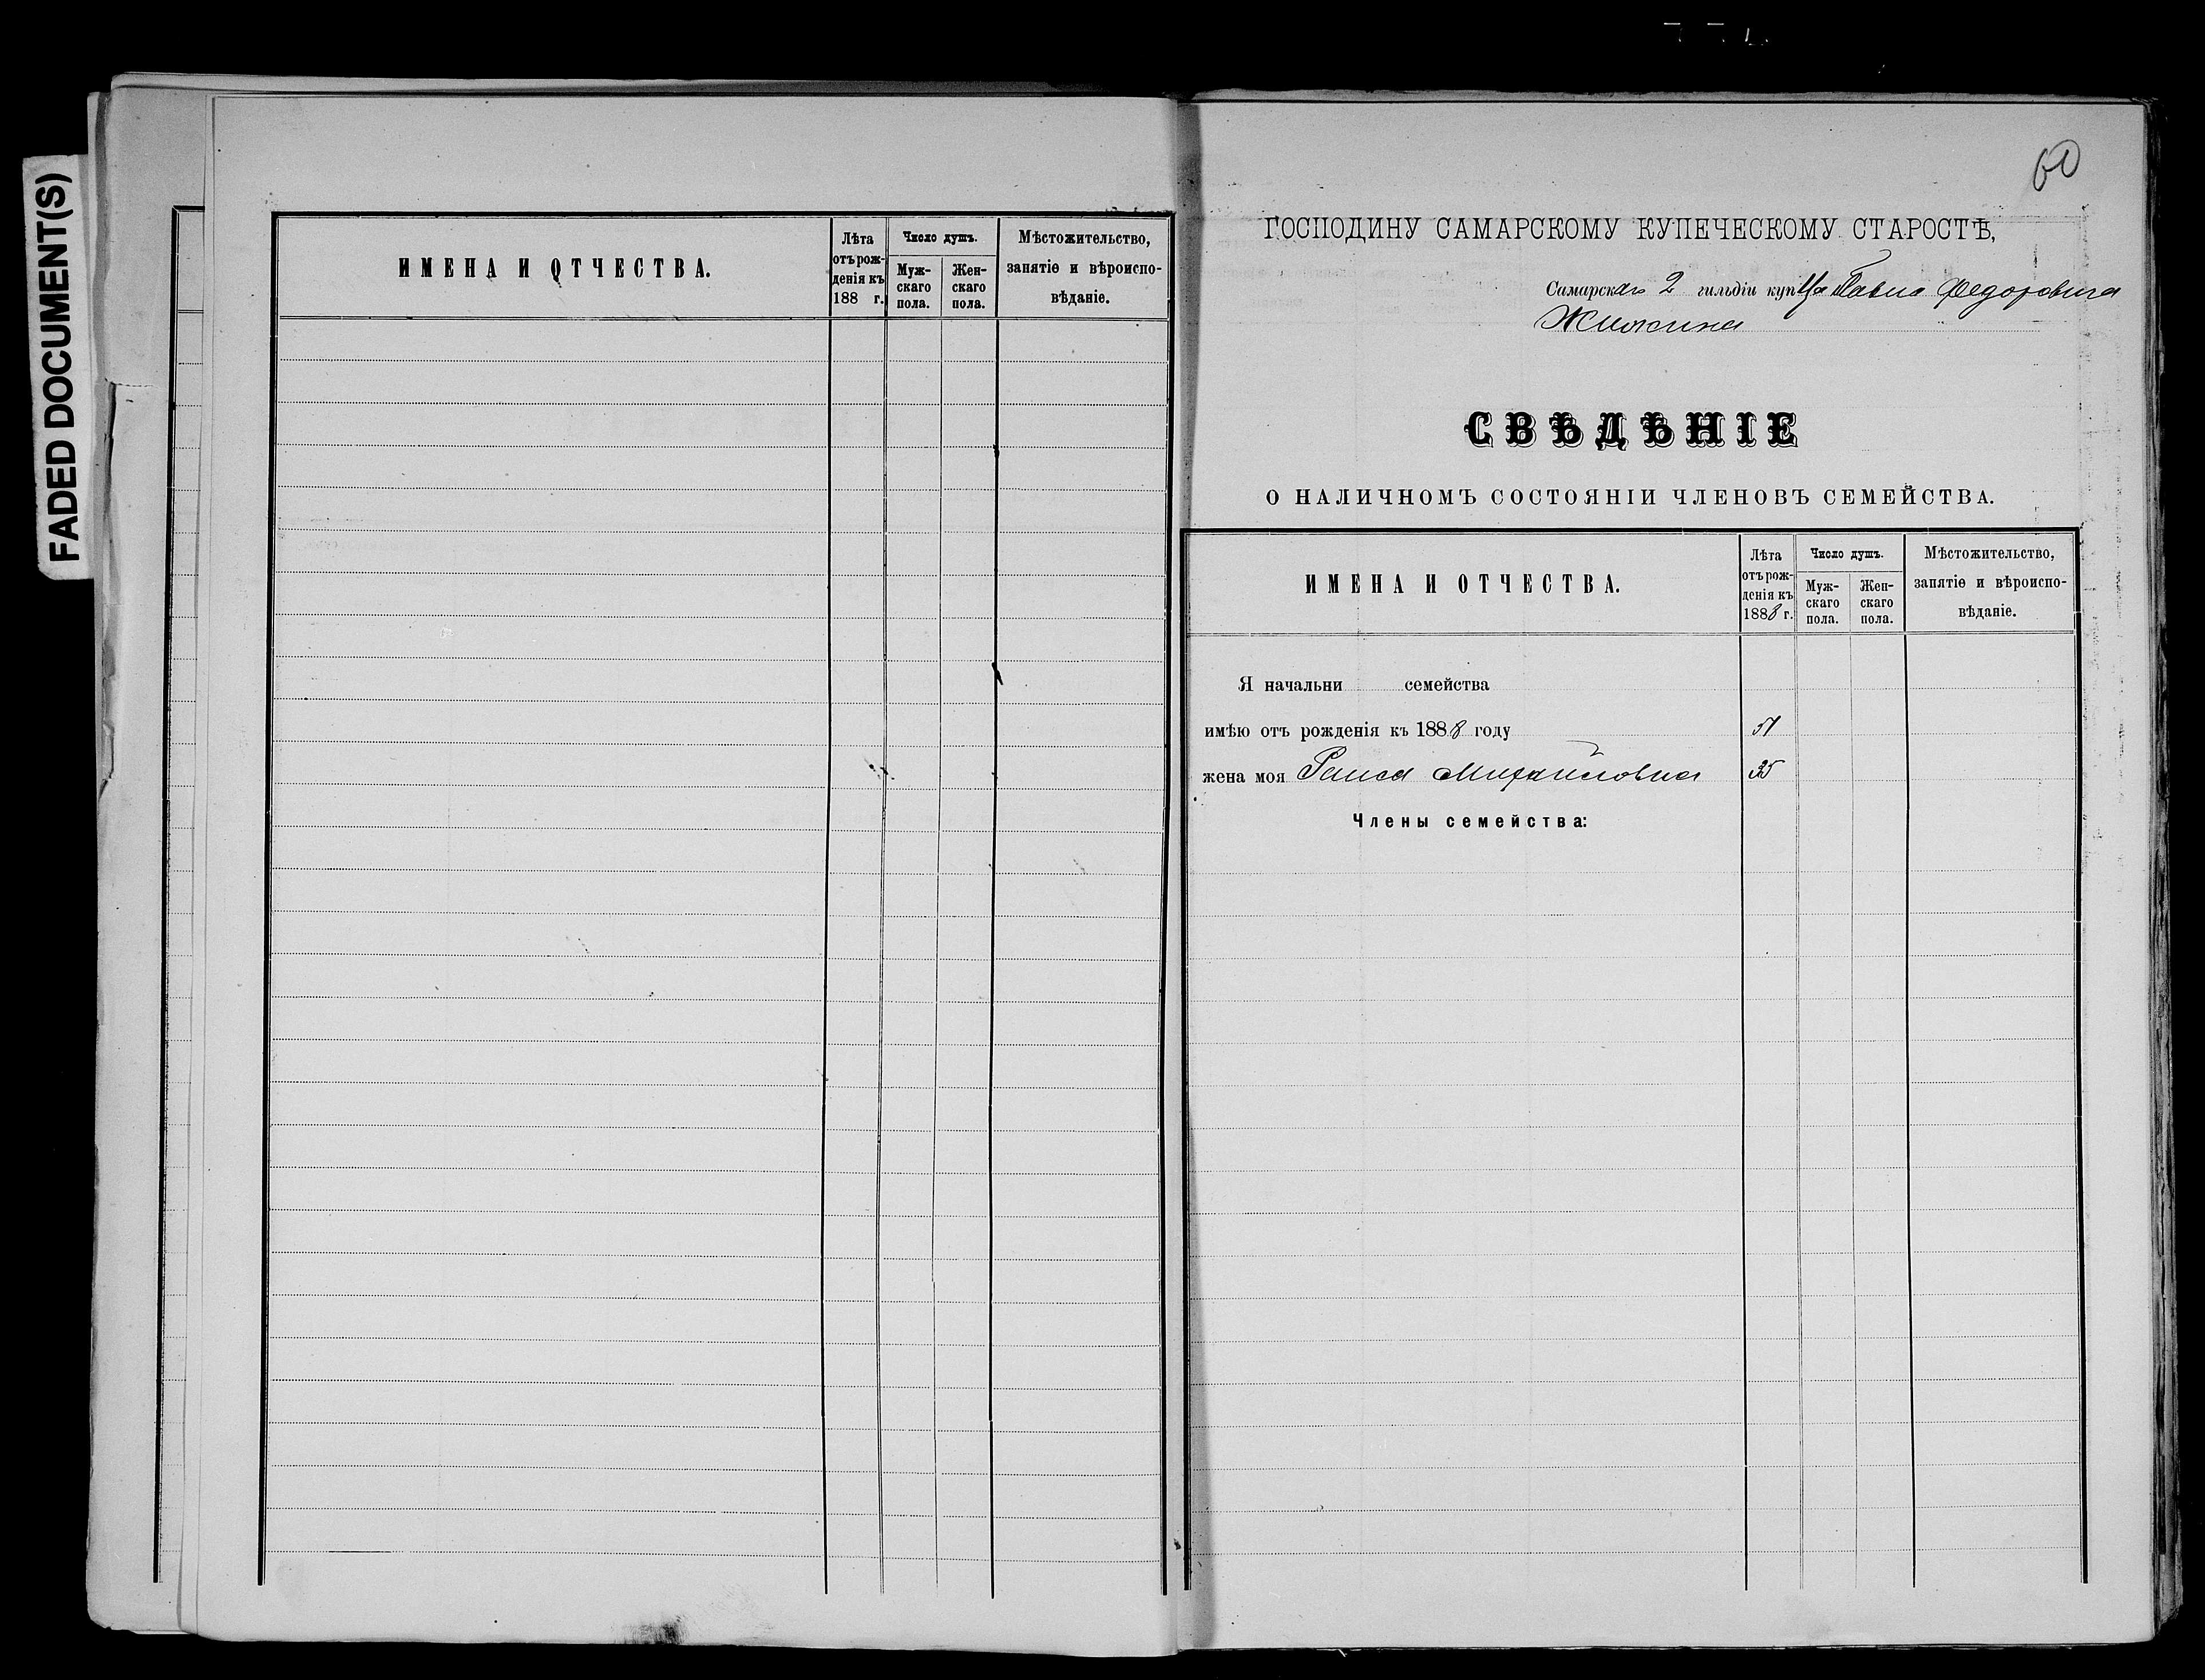 FADED DOCUMENT(S)
ИМЕНА И ОТЧЕСТВА.
Лѣта
отърож-
денія къ
188 г.
Число душъ.
Муж-
скаго
пола.
Жен-
скаго
пола.
Мѣстожительство,
занятіе и вѣроиспо-
вѣданіе.
60
ГОСПОДИНУ САМАРСКОМУ КУПЕЧЕСКОМУ СТАРОСТѢ,
Самарскаго 2 гильдіи купца Павла Федоровича
СВѢДѢНІЕ
О НАЛИЧНОМЪ СОСТОЯНІИ ЧЛЕНОВЪ СЕМЕЙСТВА.
ИМЕНА И ОТЧЕСТВА.
Лѣта
отърож-
денія къ
1888 г.
Число душъ.
Муж-
скаго
пола.
Жен-
скаго
пола.
Мѣстожительство,
занятіе и вѣроиспо-
вѣданіе.
Я начальни семейства
имѣю отъ рожденія къ 1888 году 51
жена моя Раиса Михайловна 35
Члены семейства: